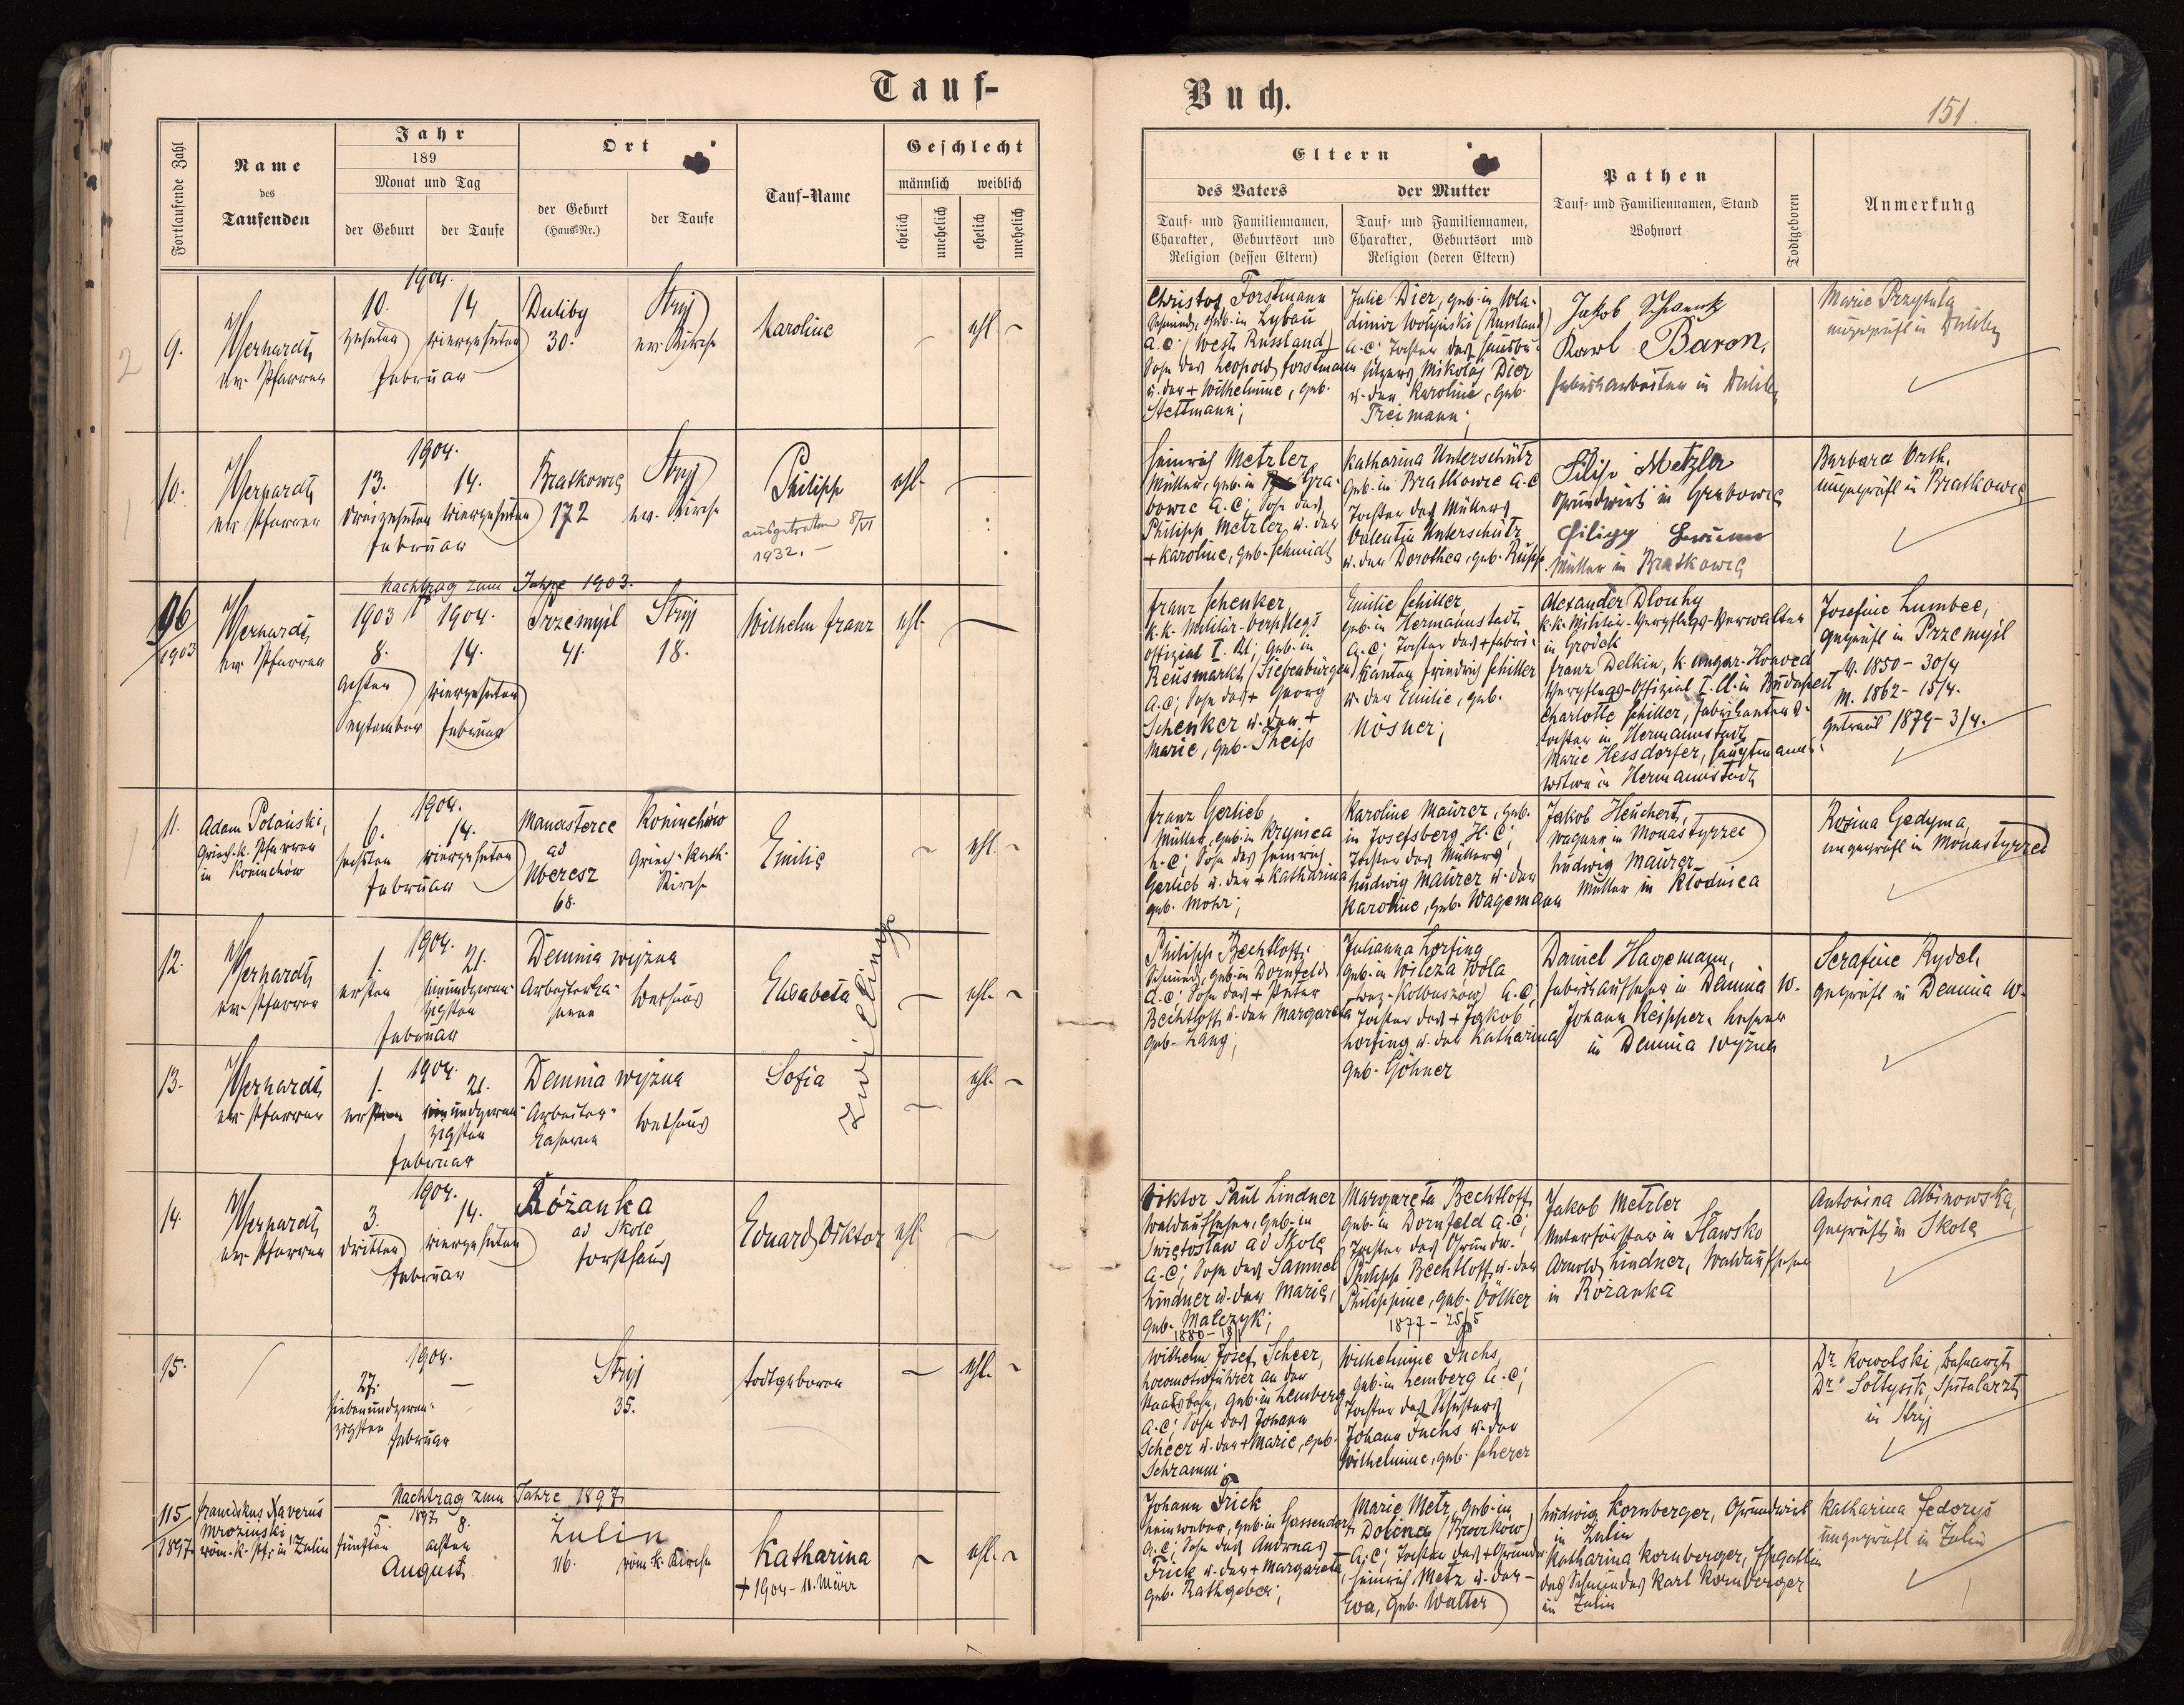 Tauf-
Fortlaufende Zahl
Name
des
Taufenden
Jahr
189
Monat und Tag
der Geburt
der Taufe
Ort
der Geburt
(Haus-Nr.)
der Taufe
Tauf-Name
Geschlecht
männlich
weiblich
ehelich
unehelich
ehelich
unehelich
Buch.
151.
Eltern
des Vaters
Tauf- und Familiennamen,
Charakter, Geburtsort und
Religion (dessen Eltern)
der Mutter
Tauf- und Familiennamen,
Charakter, Geburtsort und
Religion (deren Eltern)
Pathen
Tauf- und Familiennamen, Stand
Wohnort
Todtgeboren
Anmerkung
2
9.
ev. Pfarrer
1904.
10. 14
zehnten vierzehnten
Februar
Duliby
30.
Stryj
ev. Kirche
Karoline
ehl.
Christof Forstmann
Schmied, geb. in Lybau
A.C. (West Russland)
Sohn des Leopold Forstmann
u. der + Wilhelmine, geb.
Stettmann;
Julie Dier, geb. in Wla-
dimir Wolynski (Russland)
A.C. Tochter des Hausbe-
sitzers Mikolaj Dier
u. der Karoline, geb.
Treimann;
Jakob Schwenk
Karl Baron,
Fabriksarbeiter in Duliby
Marie Przytula
ungeprüft in Duliby
10.
ev. Pfarrer
1904.
13. 14.
dreizehnten vierzehnten
Februar
Bratkowce
172
Stryj
ev. Kirche
Philipp
ausgetreten 8/VI
1932.
ehl.
Heinrich Metzler
Müller, geb. in Gra-
bowce A.C; Sohn des
Philipp Metzler u. der
+ Karoline, geb. Schmidt
Katharina Unterschütz
geb. in Bratkowce A.C
Tochter des Müllers
Valentin Unterschütz
u. der Dorothea, geb. Rupp
Filip Metzler
Grundwirt in Grabowce
Müller in Bratkowce
Barbara Orth.
ungeprüft in Bratkowce
Nachtrag zum Jahre 1903.
96
1903
ev. Pfarrer
1903 1904.
8. 14.
achten vierzehnten
September Februar
Przemysl
41.
Stryj
18.
Wilhelm Franz
ehl.
Franz Schenker
k.k. Militär-Verpflegs
offizial I. Cl; geb. in
Reusmarkt (Siebenbürgen)
A.C; Sohn des + Georg
Schenker u. der +
Marie, geb. Theiss
Emilie Schiller
geb. in Hermannstadt,
A.C; Tochter des + Fabri-
kanten Friedrich Schiller
u. der Emilie, geb.
Nösner;
Alexander Dlouhy
k.k. Militär-Verpflegs-Verwalter
in Grodek
Franz Delkin, k. ungar. Honved
Verpflegs-Offizial I. Cl. in Budapest
Charlotte Schiller, Fabrikantens-
tochter in Hermannstadt
Marie Hessdorfer, Hauptmanns-
witwe in Hermannstadt
Josefine Lumbee,
geprüft in Przemysl
V. 1850 - 30/4
M. 1862 - 15/4.
Getraut 1879 - 3/4.
11.
Adam Polański,
Griech. k. Pfarrer
in Koniuchów
1904.
6. 14.
sechsten vierzehnten
Februar
Manasterce
ad
Uberesz
68.
Koniuchów
Griech. Kath.
Kirche
Emilie
ehl.
Franz Gerlieb
Müller, geb. in Krynica
H.C; Sohn des Heinrich
Gerlieb u. der + Katharina
geb. Mohr;
Karoline Maurer, geb.
in Josefsberg H.C;
Tochter des Müllers
Ludwig Maurer u. der
Karoline, geb. Wagemann
Jakob Heuchert,
Wagner in Monastyrzec
Ludwig Maurer
Müller in Kłodnica
Rozina Gedyma,
ungeprüft in Monastyrzec
12.
ev. Pfarrer
1904.
1. 21.
ersten einundzwan-
zigsten
Februar
Demnia wyżna
Arbeiterka-
serne
Bethaus
Elisabeta
Zwillinge
ehl.
Philipp Bechtloff,
Schmied, geb. in Dornfeld
A.C; Sohn des + Peter
Bechtloff u. der Margareta
geb. Lang;
Julianna Lorfing
geb. in Wilcza Wola
(bez. Kolbuszów) A.C,
Tochter des + Jakob
Lorfing u. der Katharina
geb. Göhner
Daniel Hagemann,
Fabriksaufseher in Demnia W.
Johann Keipper, Lehrer
in Demnia wyżna
Serafine Rydel,
geprüft in Demnia W.
13.
ev. Pfarrer
1904.
1. 21.
ersten einundzwan-
zigsten
Februar
Demnia wyżna
Arbeiter-
kaserne
Bethaus
Sofia
ehl.
14.
ev. Pfarrer
1904.
3. 14.
dritten vierzehnten
Februar
Różanka
ad Skole
Forsthaus
Eduard Viktor
ehl.
Viktor Paul Lindner
Waldaufseher, geb. in
Swiętosław ad Skole
A.C; Sohn des Samuel
Lindner u. der Marie,
geb. Malczyk;
Margareta Bechtloff,
geb. in Dornfeld A.C;
Tochter des Grundw.
Philipp Bechtloff u. der
Philippine, geb. Völker
1877 - 25/5
Jakob Metzler
Unterförster in Sławsko
Arnold Lindner, Waldaufseher
in Różanka
Antonina Albinowska,
geprüft in Skole
15.
1904.
27.
siebenundzwan-
zigsten
Februar
Stryj
35.
todtgeboren
ehl.
Wilhelm Josef Scheer,
Locomotivführer an der
Staatsbahn, geb. in Lemberg
A.C; Sohn des Johann
Scheer u. der + Marie, geb.
Schramm;
Wilhelmine Fuchs,
geb. in Lemberg A.C;
Tochter des Schusters
Johann Fuchs u. der
Wilhelmine, geb. Scherer
Dr. Kowolski, Bahnarzt,
Dr. Sołtysik, Spitalarzt,
in Stryj
Nachtrag zum Jahre 1897.
115
1897
Franciskus Xaverus
Mrozinski
röm. k. Pfr. in Zulin
1897.
5. 8.
fünften achten
August
Zulin
116.
röm. k. Kirche
Katharina
+ 1904 - 11. März
ehl.
Johann Frick
Leinweber, geb. in Gassendorf
A.C; Sohn des Andreas
Frick u. der + Margareta
geb. Rathgeber;
Marie Metz, geb. in
Dolina
A.C; Tochter des + Grundw.
Heinrich Metz u. der
Eva, geb. Walter
Ludwig Kornberger, Grundwirt
in Zulin
Katharina Kornberger, Ehegattin
des Schmiedes Karl Kornberger
in Zulin
Katharina Fedoryś
ungeprüft in Zulin